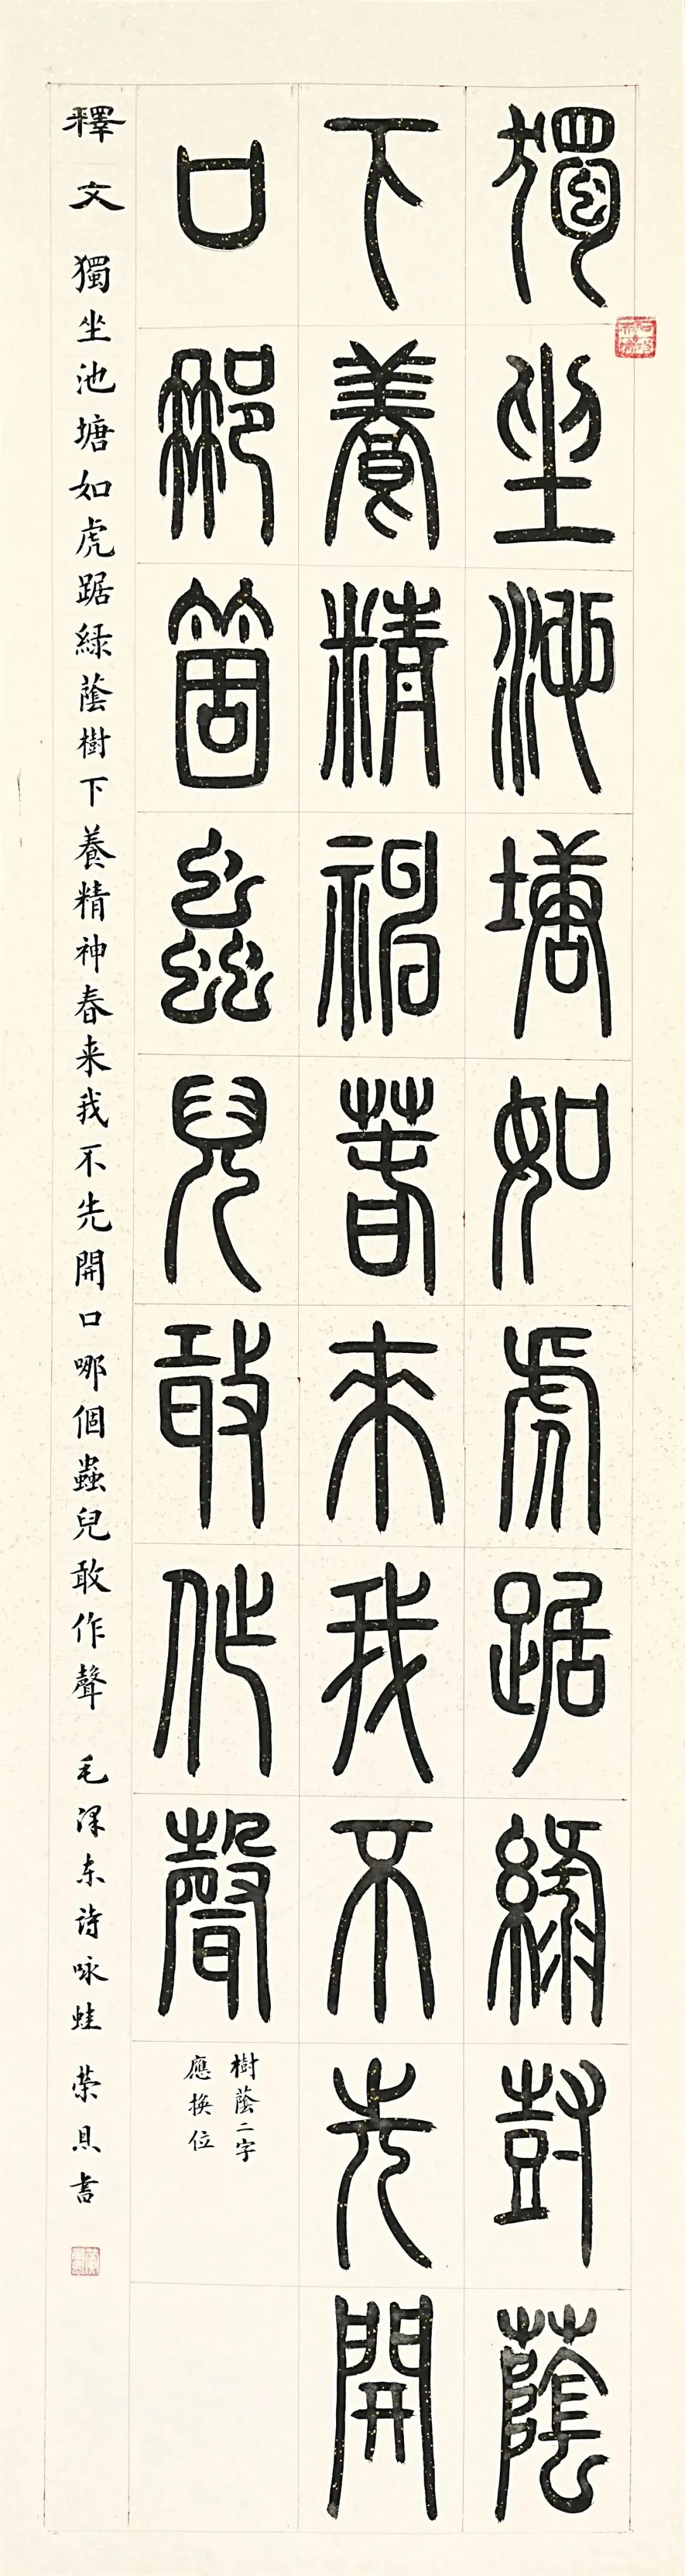 獨坐池塘如虎踞綠尌蔭
下養精神春來我不先開
口那箇蟲兒敢作聲
樹蔭二字
應換位
釋文 獨坐池塘如虎踞緑蔭樹下養精神春来我不先開口哪個蟲兒敢作聲 毛泽东詩咏蛙 荣書